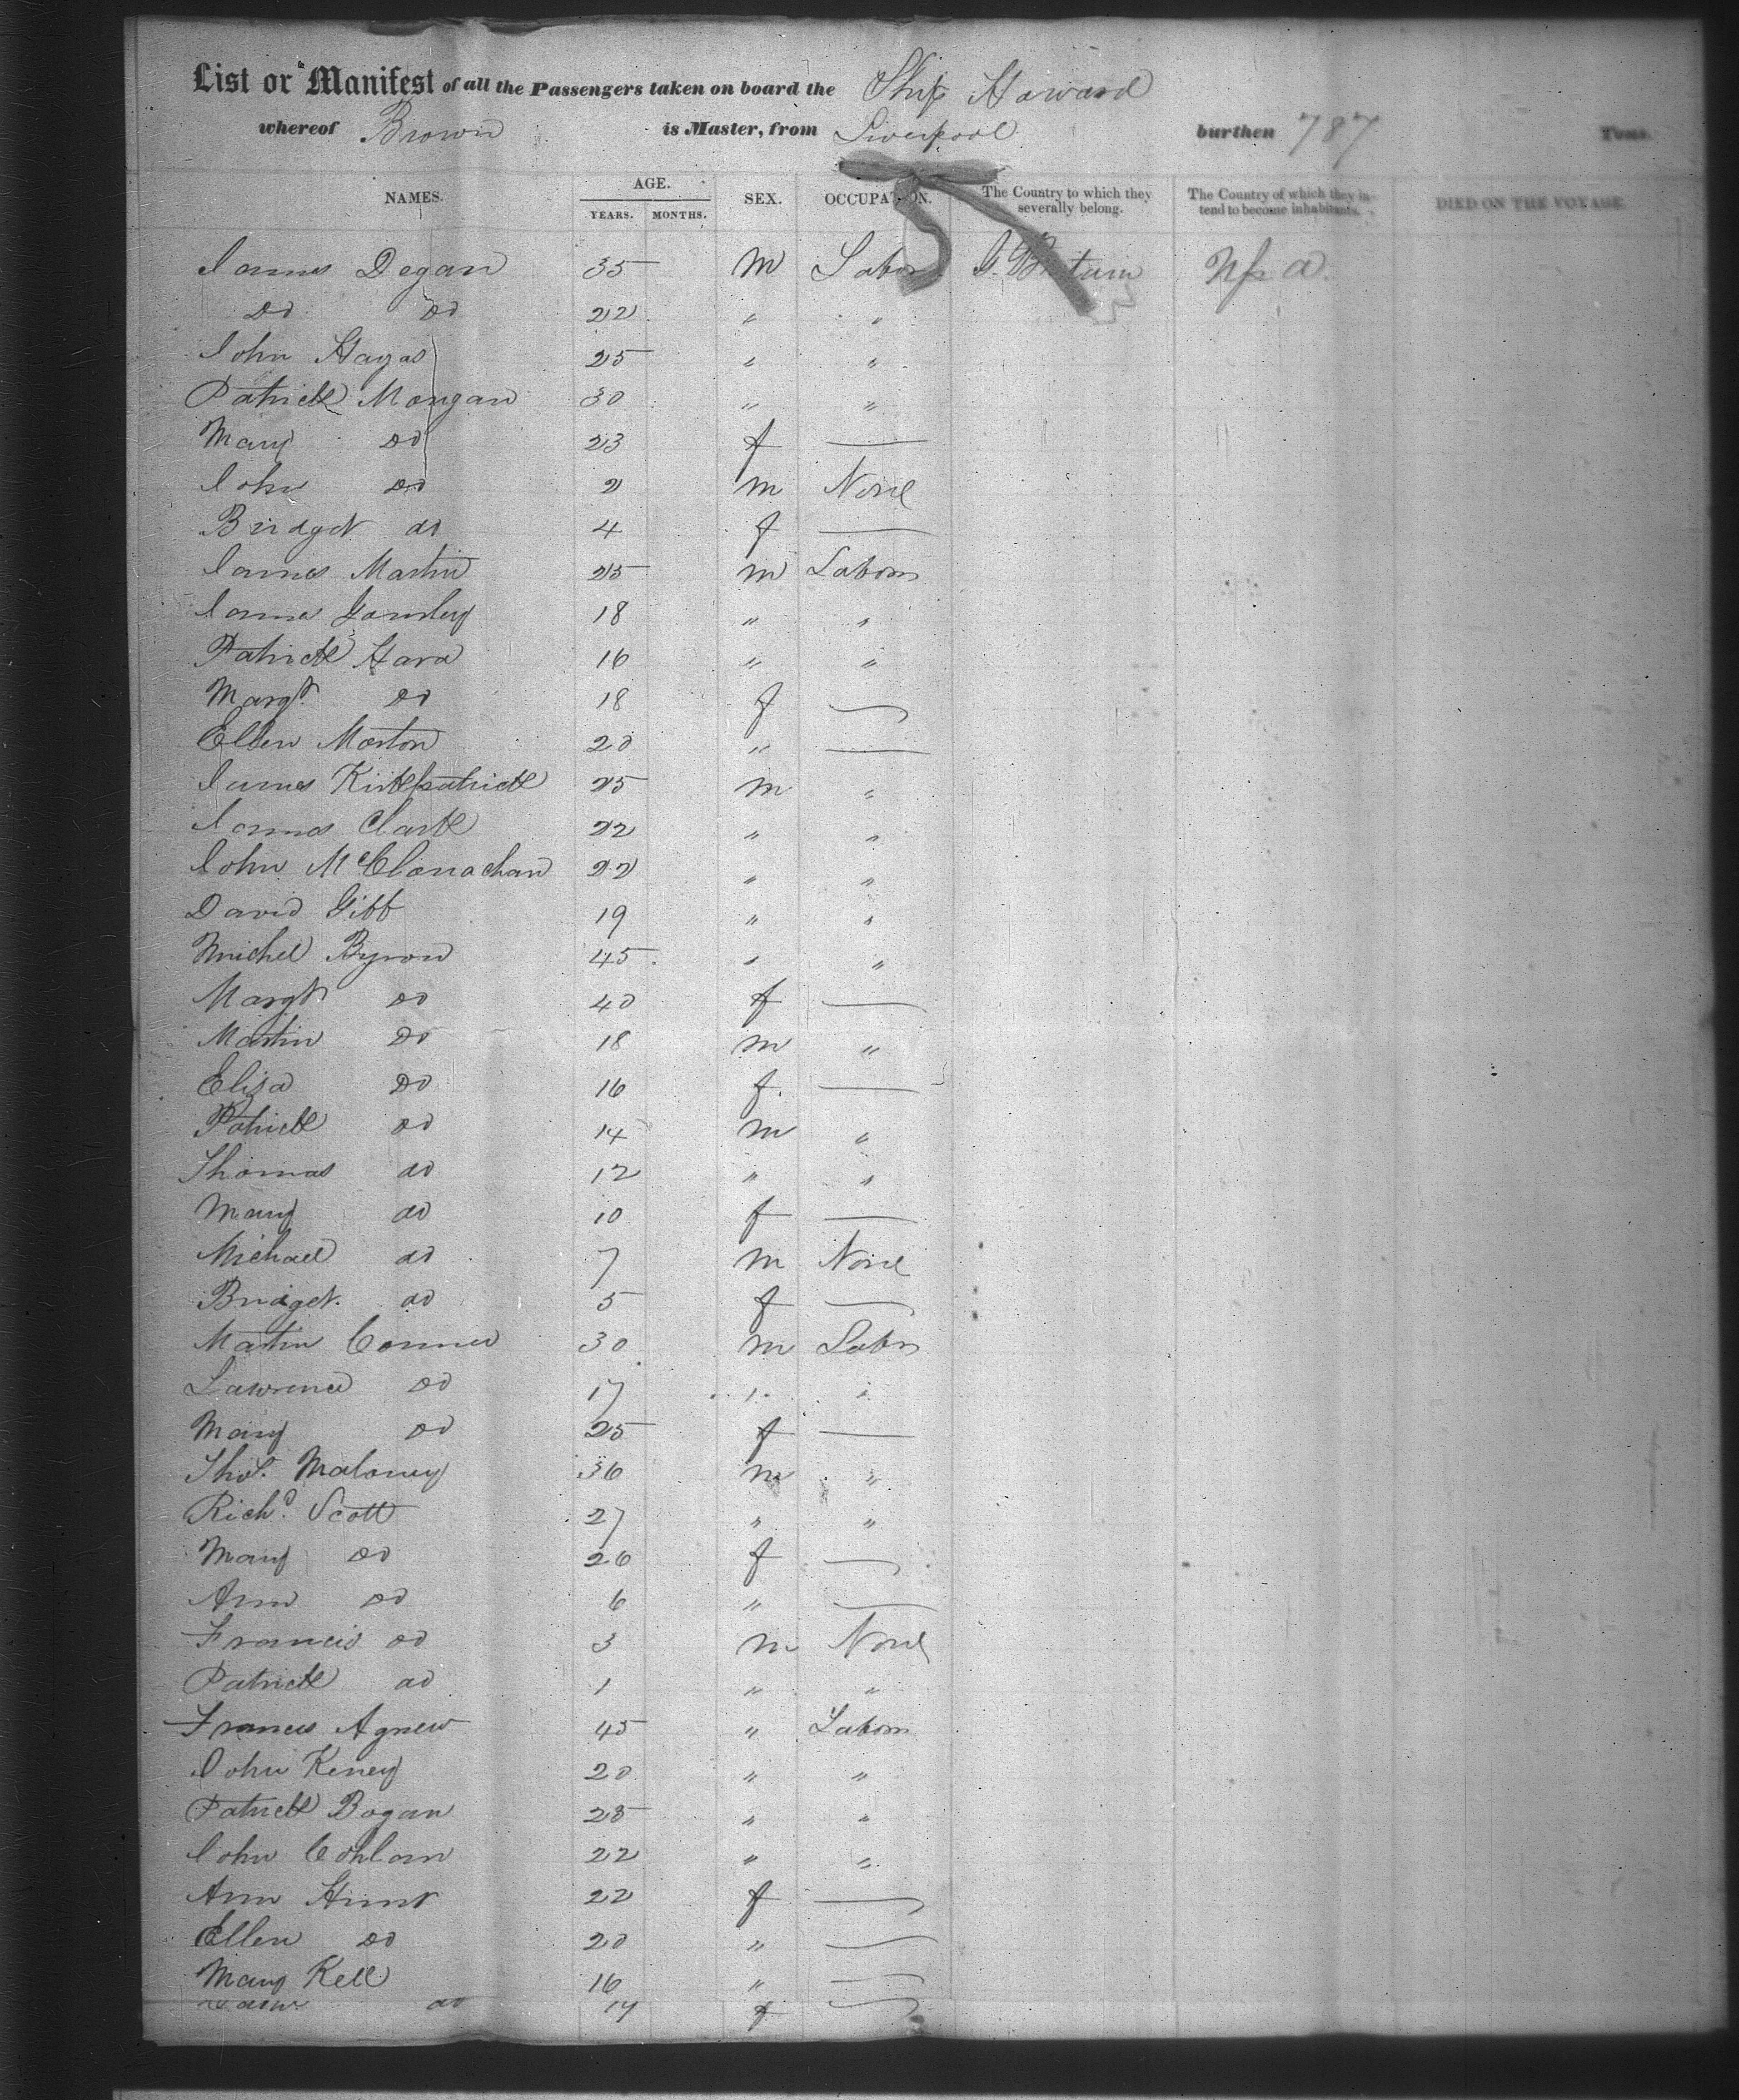 List or Manifest of all the Passengers taken on board the Ship Howard
whereof Brown is Master, from Liverpool burthen 787 Tons
NAMES. AGE. YEARS. MONTHS. SEX. OCCUPATION. The Country to which they severally belong. The Country of which they intend to become inhabitants. DIED ON THE VOYAGE
James Degan 35 M Labor G. Britain
Do Do 22 " "
John Hayas 25 " "
Patrick Mongan 30 " "
Mary Do 23 f —
John Do 2 M None
Bridget do 4 f —
James Martin 25 M Laborr
James 18 " "
Patrick Hara 16 " "
Margt. Do 18 f —
Ellen Morton 20 " —
James Kirkpatrick 25 M "
James Clark 22 " "
John McClanachan 22 " "
David Gibb 19 " "
Michel Byron 45 " "
Margt Do 40 f —
Martin Do 18 M "
Eliza Do 16 f. —
Patrick Do 14 M "
Thomas do 12 " "
Mary do 10 f —
Michael do 7 M None
Bridget. do 5 f —
Martin Conner 30 M Labr
Lawrence Do 17 " "
Mary Do 25 f —
Thos. Maloney 36 M "
Richd. Scott 27 " "
Mary Do 26 f —
Ann Do 6 " —
Francis Do 3 M None
Patrick do 1 " "
Francis Agnew 45 " Laborr
John Keney 20 " "
Patrick Bogan 25 " "
John Cohlan 22 " "
Ann Hunt 22 f —
Ellen Do 20 " —
Mary Kell 16 " —
do 14 f —